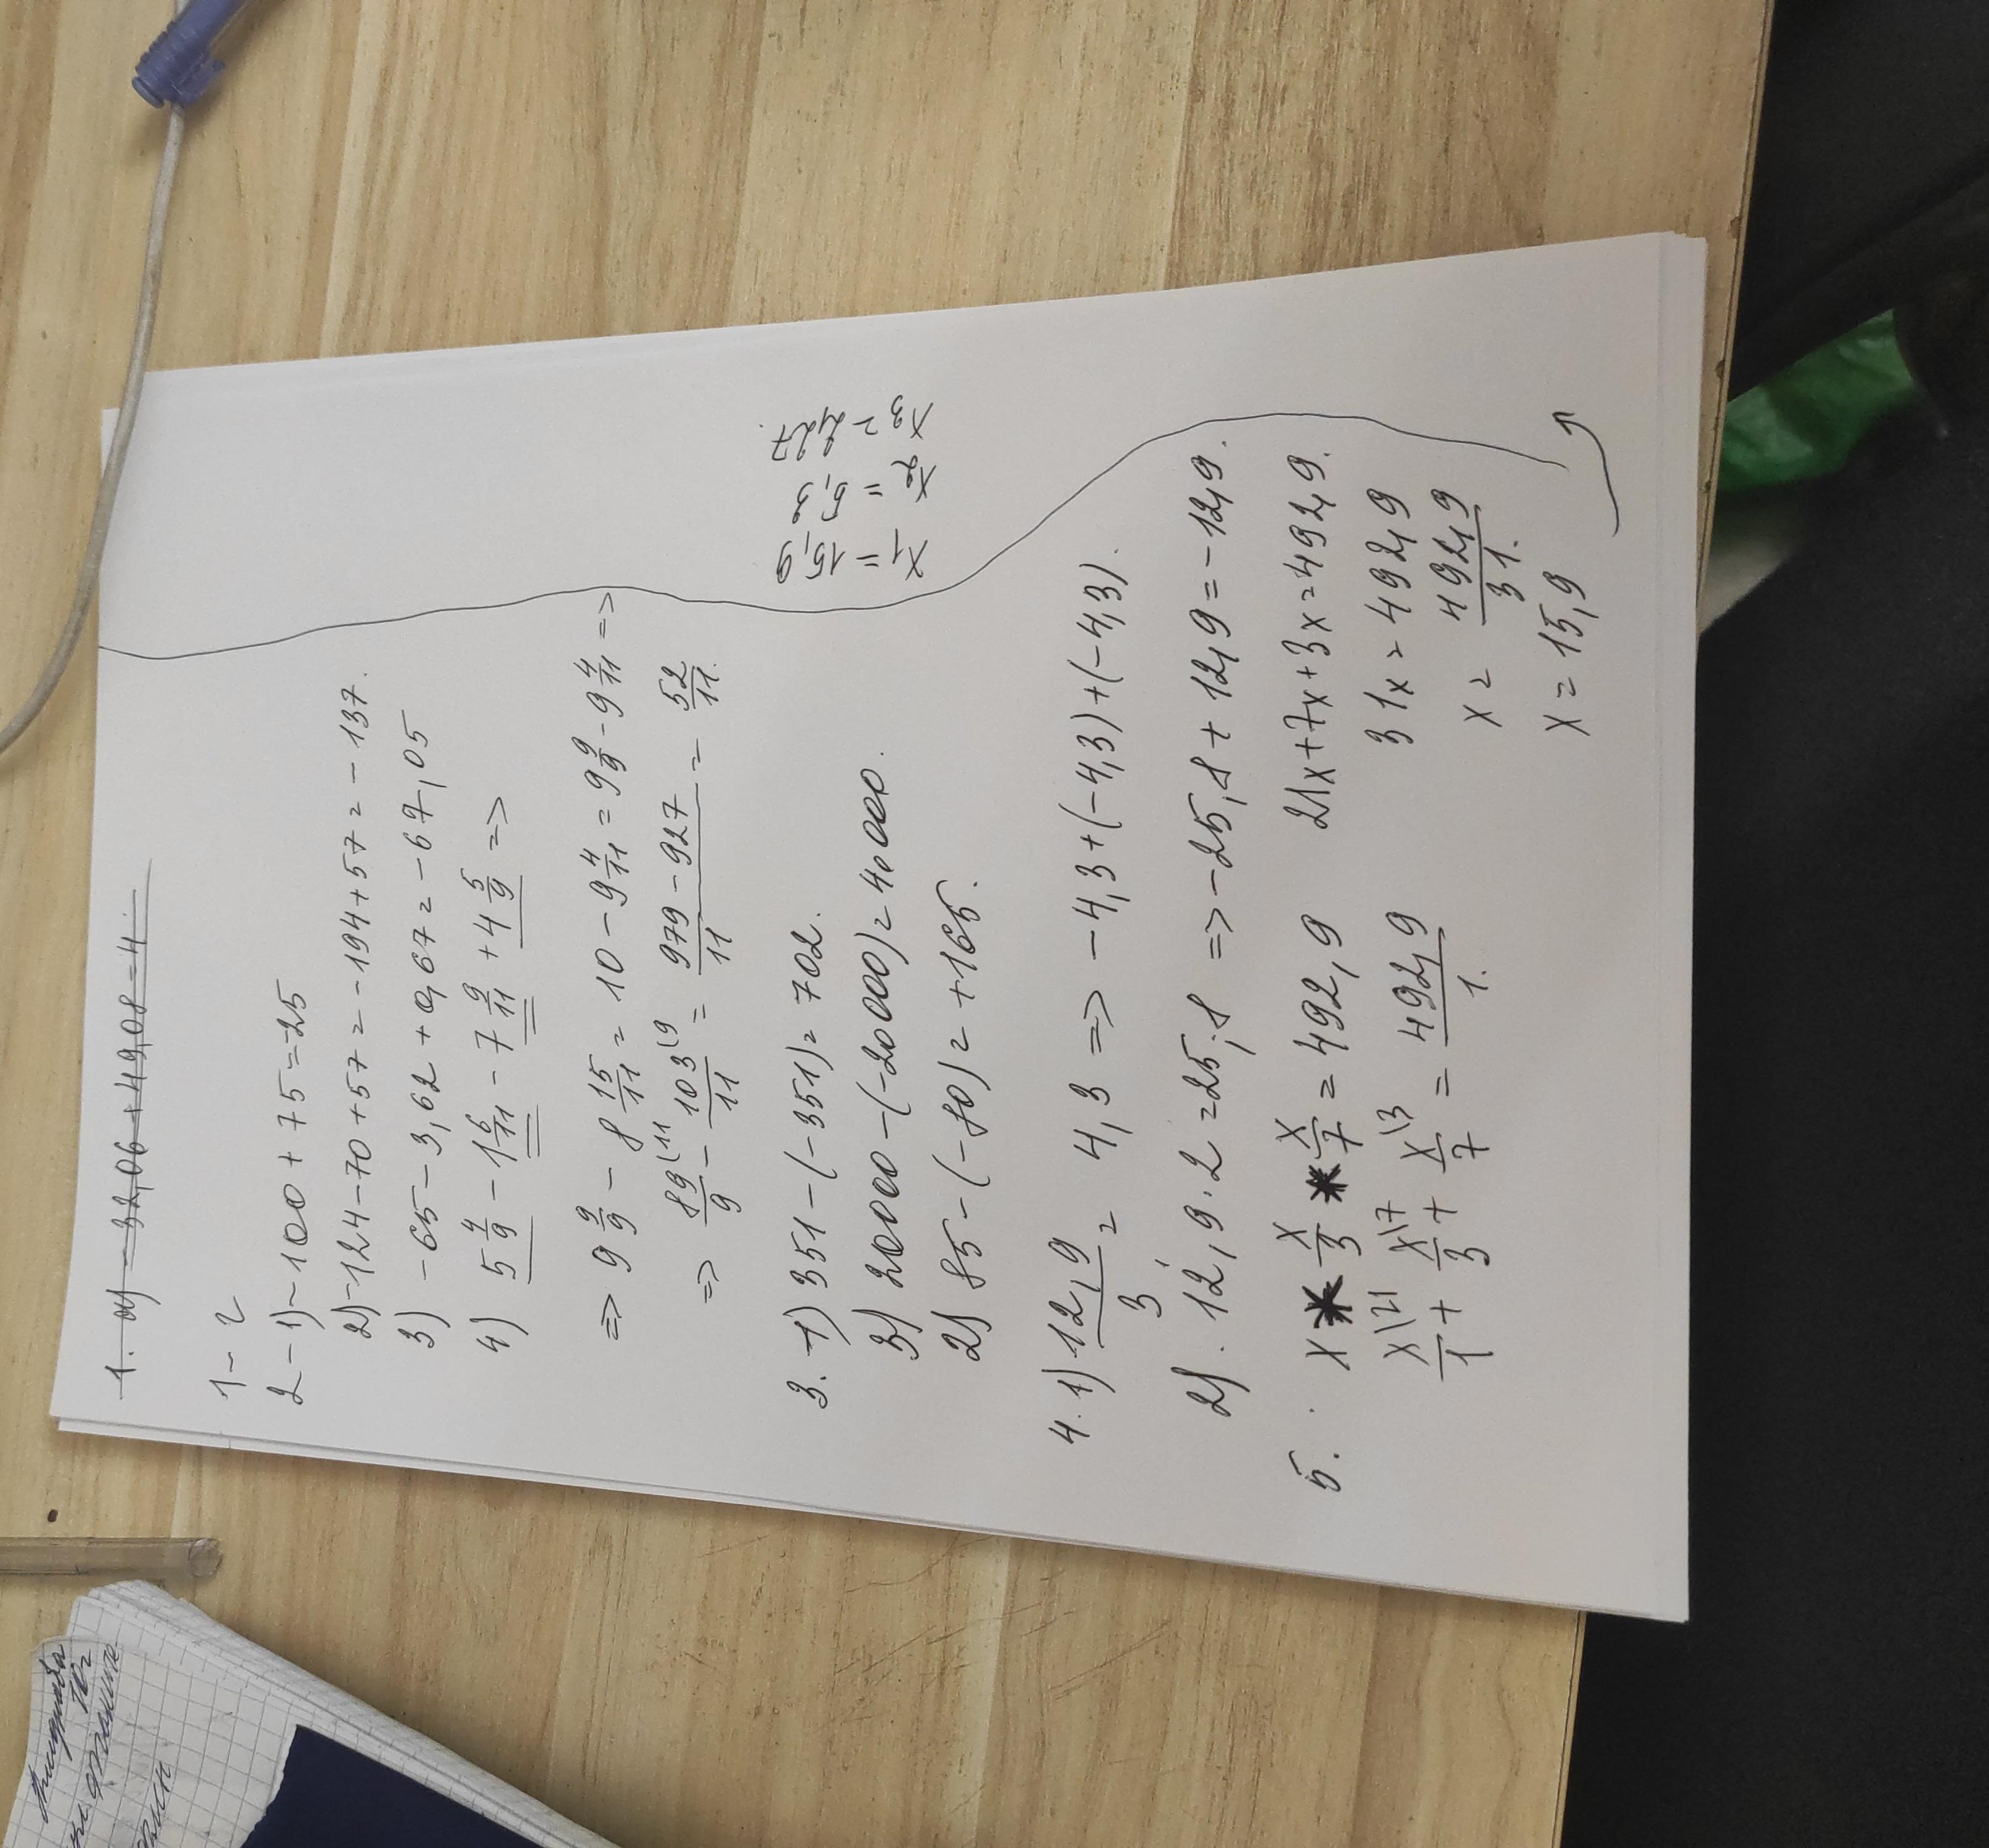 1. a) – 32,06 + 49,08 = 4
1 – 2
2 – 1) – 100 + 75 = -25
2) -124 – 70 + 57 = – 194 + 57 = – 137.
3) – 65 – 3,62 + 0,67 = – 67,05
4) 5 4/9 – 1 6/11 – 7 9/11 + 4 5/9 =>
=> 9 9/9 – 8 15/11 = 10 – 9 4/11 = 9 9/9 – 9 4/11 =>
=> 89/9 (11 – 103/11 (9 = 979 – 927/11 = 52/11.
3. 1) 351 – (– 351) = 702.
3) 20000 – (–20000) = 40000.
2) 85 – (– 80) = +165.
4. 1) 12,9/3 = 4,3 => – 4,3 + (– 4,3) + (– 4,3).
2). 12,9 · 2 = 25,8 => – 25,8 + 12,9 = – 12,9.
5. x x/3 x/7 = 492,9
x\21/1 + x\7/3 + x\3/7 = 492,9/1.
21x + 7x + 3x = 492,9.
31x = 492,9
x = 492,9/31.
x = 15,9
x1 = 15,9
x2 = 5,3
x3 = 2,27.